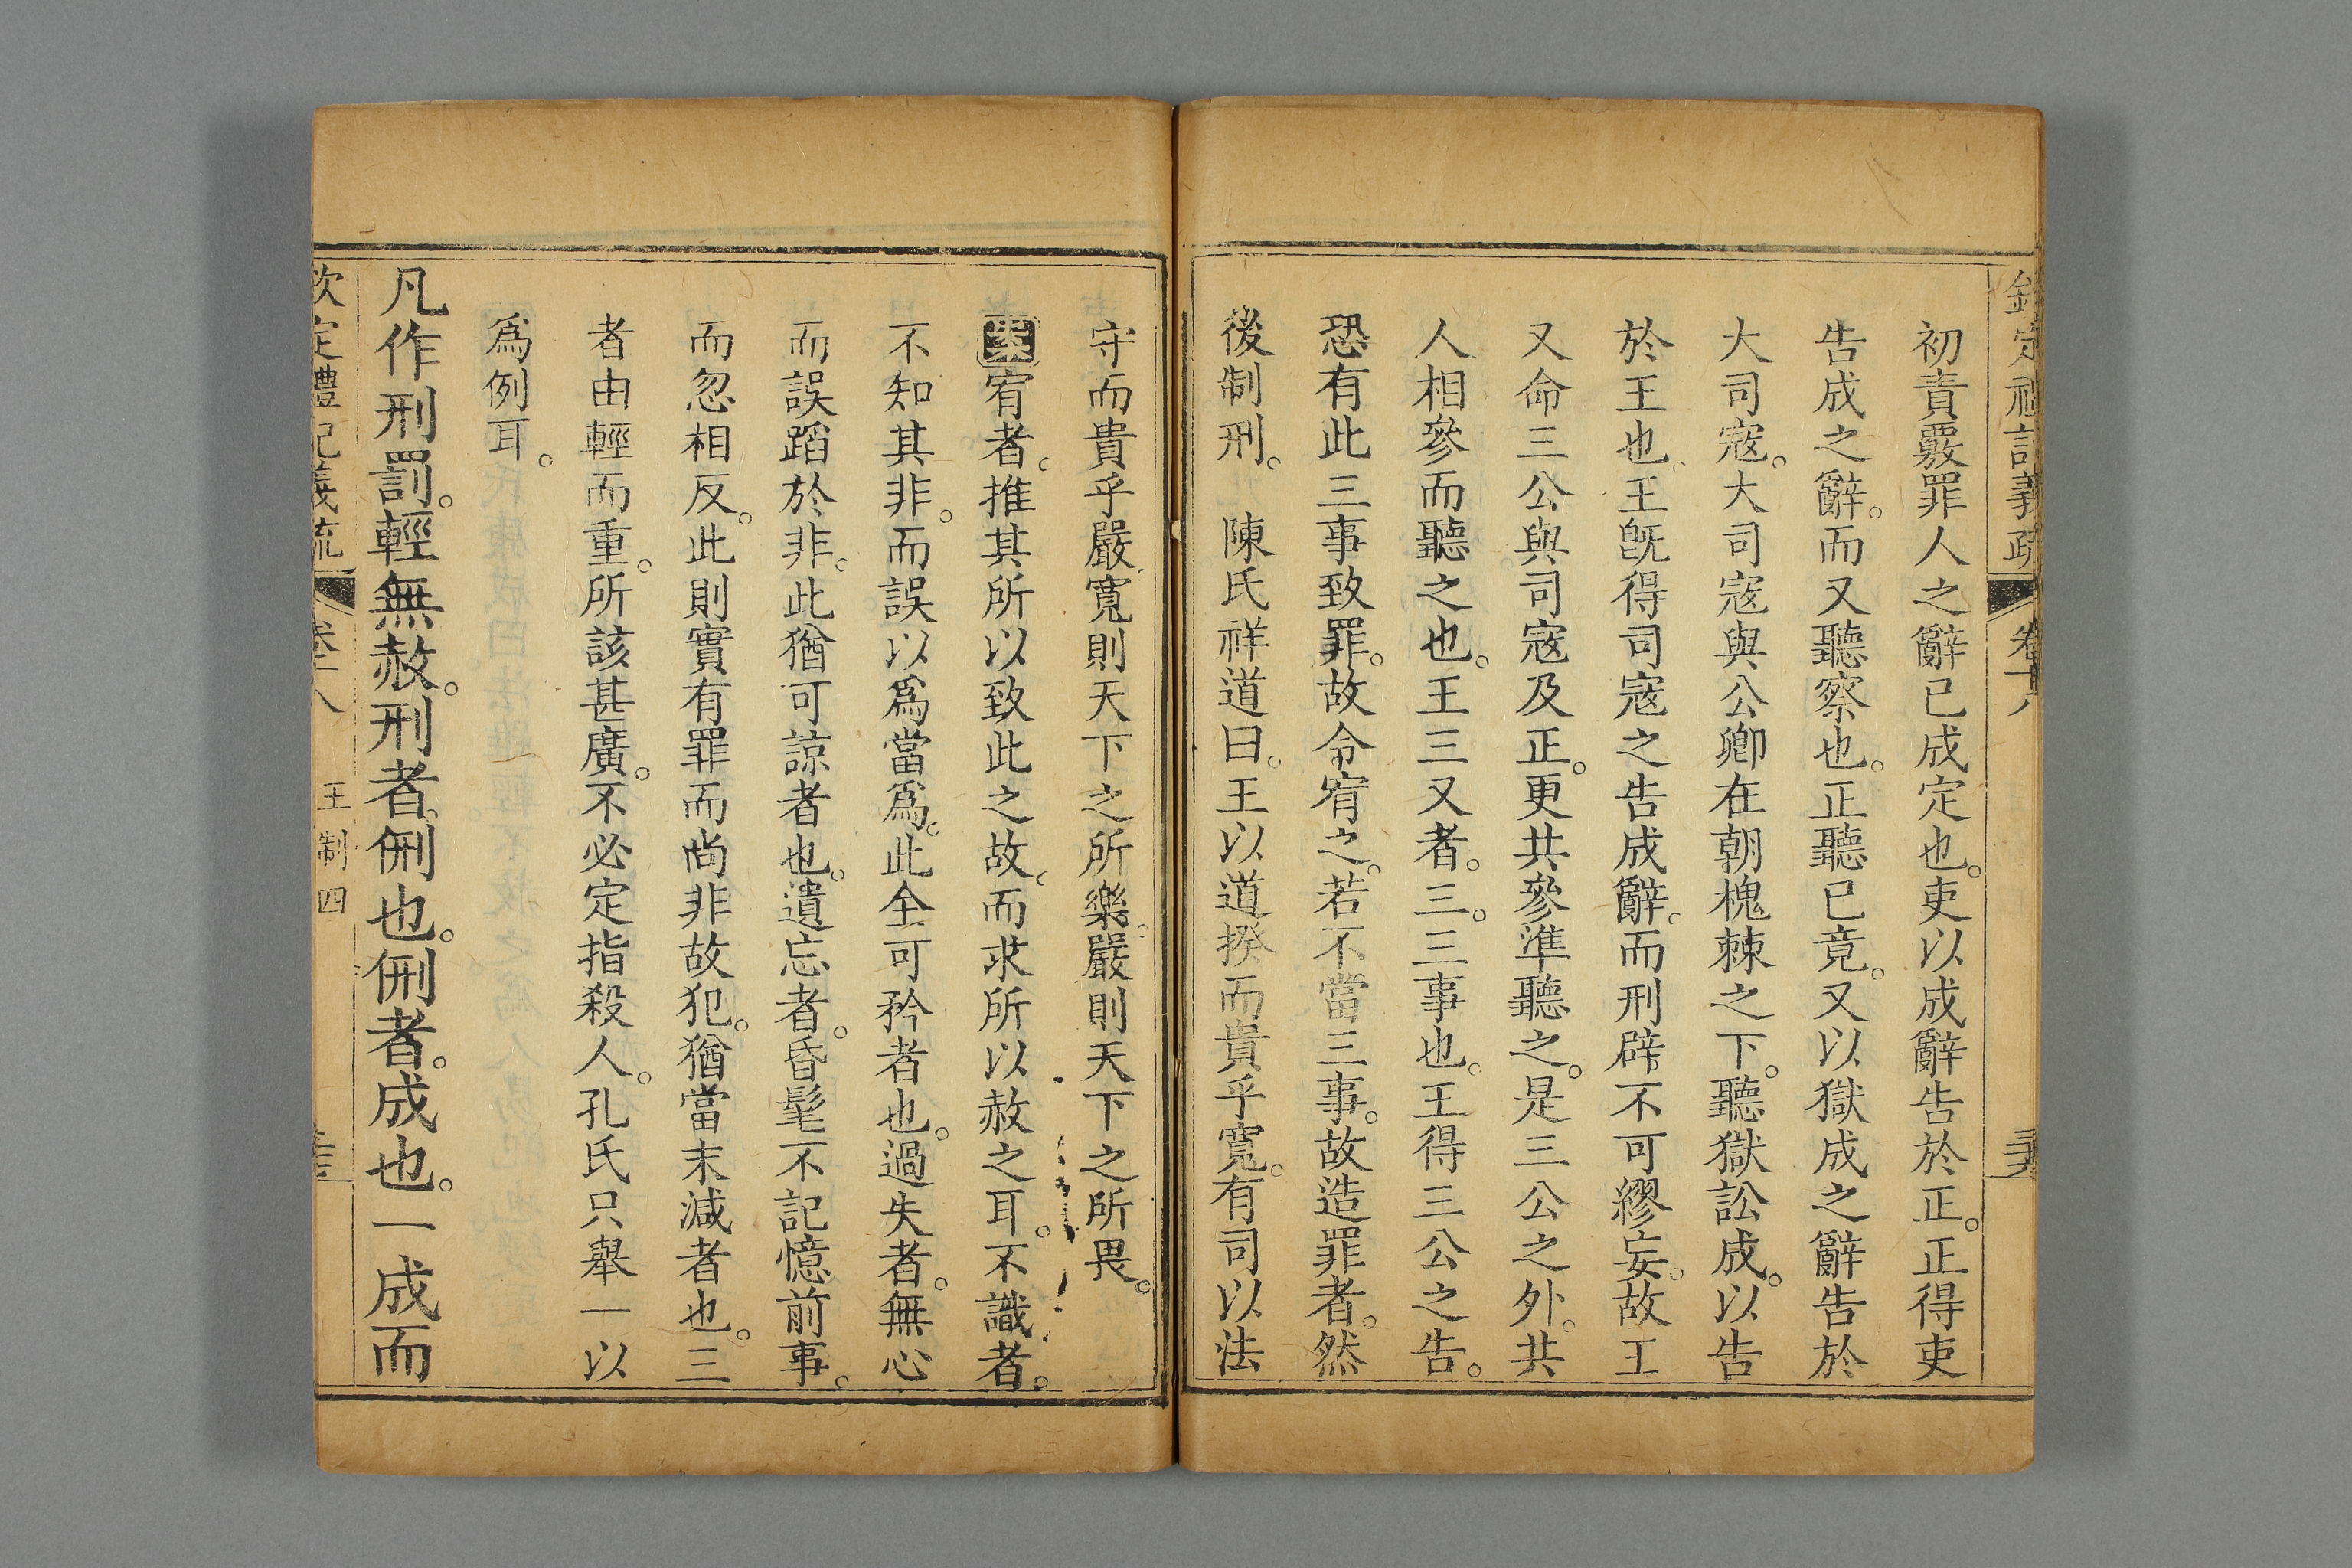 欽定禮記義疏 卷十八
初責覈罪人之辭已成定也。吏以成辭告於正。正得吏
告成之辭。而又聽察也。正聽已竟。又以獄成之辭告於
大司寇。大司寇與公卿在朝槐棘之下。聽獄訟成。以告
於王也。王旣得司寇之告成辭。而刑辟不可繆妄。故王
又命三公與司寇及正。更共參準聽之。是三公之外。共
人相參而聽之也。王三又者。三。三事也。王得三公之告。
恐有此三事致罪。故令宥之。若不當三事。故造罪者。然
後制刑。 陳氏祥道曰。王以道揆而貴乎寬。有司以法
守而貴乎嚴。寬則天下之所樂。嚴則天下之所畏。
案宥者。推其所以致此之故。而求所以赦之耳。不識者。
不知其非。而誤以爲當爲。此全可矜者也。過失者。無心
而誤蹈於非。此猶可諒者也。遺忘者。昏髦不記憶前事。
而忽相反。此則實有罪而尚非故犯。猶當末減者也。三
者由輕而重。所該甚廣。不必定指殺人。孔氏只舉一以
爲例耳。
凡作刑罰。輕無赦。刑者。侀也。侀者。成也。一成而
欽定禮記義疏 卷十八 王制四